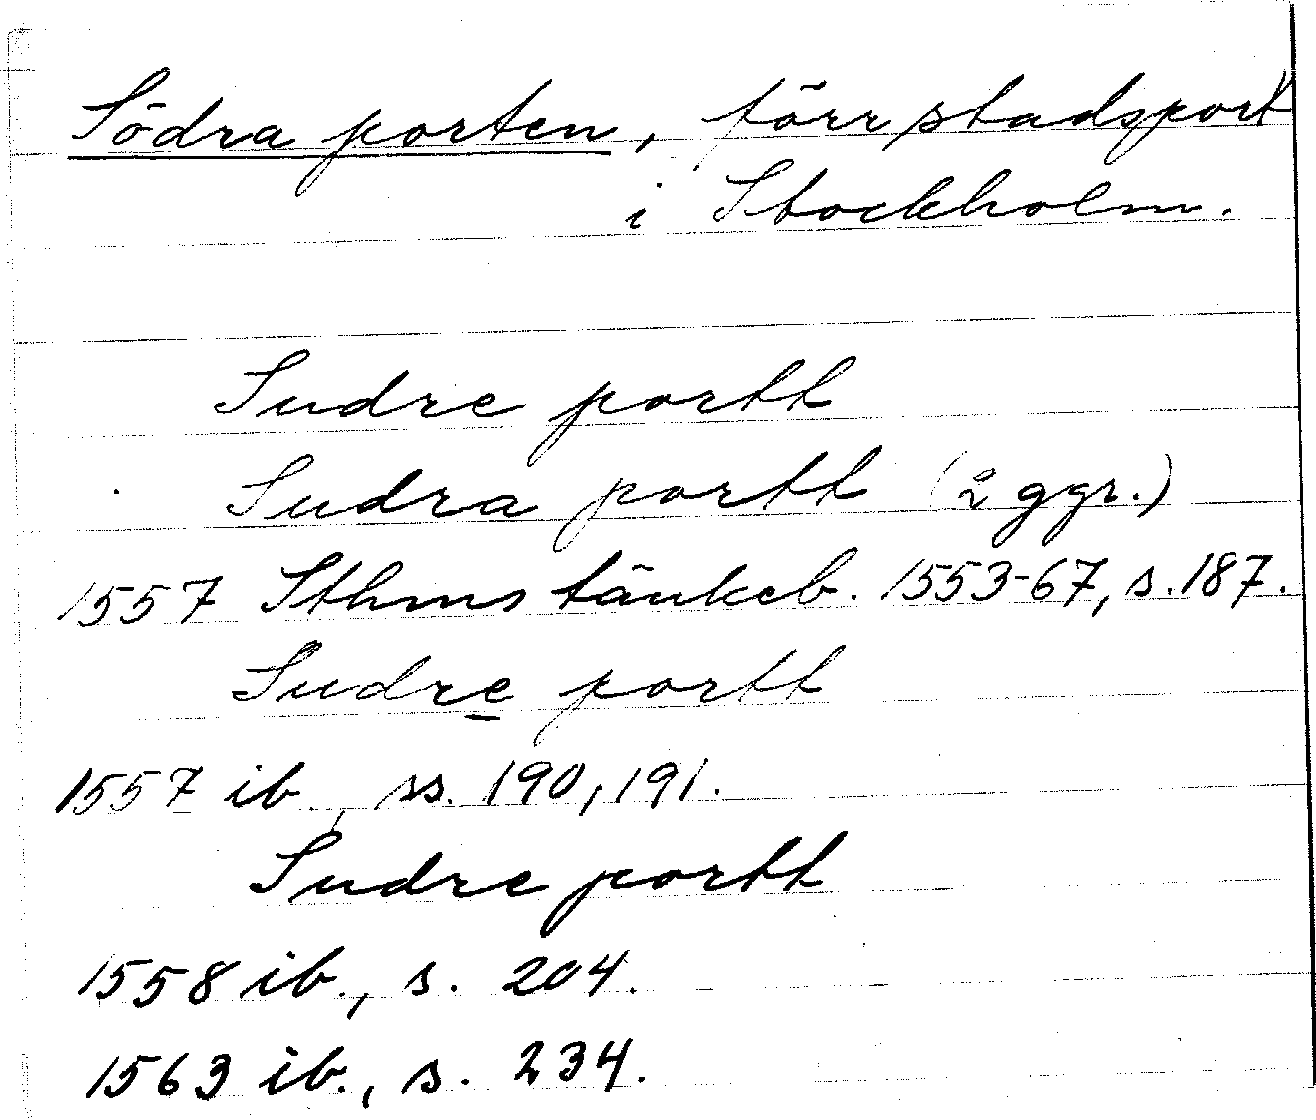 Södra porten, förr stadsport
i Stockholm.
Sudre portt
Sudra portt (2 ggr.)
1557 Sthms tänkeb. 1553-67, s. 187.
Sudre portt
1557 ib., ss. 190, 191.
Sudre portt
1558 ib., s. 204.
1563 ib., s. 234.